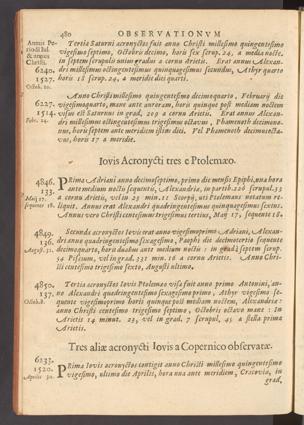 480 OBSERVATIONVM
Annus Pe-
riodi Iul.
& annus
Christi.
Tertia Saturni acronyctos fuit anno Christi millesimo quingentesimo
vigesimo septimo, Octobris decimo, horis sex scrup. 24, a media nocte,
in septem scrupulis unius gradus a cornu Arietis. Erat annus Alexan-
6240. dri millesimus octingentesimus quinquagesimus secundus, Athyr quarto
1527. horis 18 scrup. 24, a meridie diei quarti.
Octob. 10.
Anno Christi millesimo quingentesimo decimoquarto, Februarij die
6227. vigesimoquarto, mane ante auroram, horis quinque post mediam noctem
1514. ejus est Saturnus in grad, 209 a cornu Arietis. Erat annus Alexan-
Febr. 24. dri millesimus octingentesimus trigesimus octavus, Phamenoth decimono-
nus, horis septem ante meridiem istius diei. Vel Phamenoth decimiocta-
vus, horis 17 a meridie.
Iovis Acronycti tres e Ptolemæo.
4846. PRima Adriani anno decimoseptimo, primo die mensis Epiphi, una hora
133. ante mediam noctis sequentis, Alexandriæ, in partib. 226 scrupul. 33
Maij 17. a cornu Arietis, vel in 23 min. 11 Scorpij, uti Ptolemæus notatum re-
sequente 18. liquit. Annus erat Alexandri quadringentesimus quinquagesimus sextus.
Annus vero Christi centesimus trigesimus tertius, Maij 17, sequente 18.
4849. Secunda acronyctos Iovis erat anno vigesimoprimo Adriani, Alexan-
136. dri anno quadringentesimo sexagesimo, Paophi die decimotertio sequente
Augusti. 31. decimoquarto, horis duabus ante mediam noctis: in grad. 7 septem scrup.
54 Piscium, vel in grad. 331 min. 16 a cornu Arietis. Anno Chri-
sti centesimo trigesimo sexto, Augusti ultimo.
4850. Tertia acronyctos Iovis Ptolemæo visa fuit anno primo Antonini, an-
137. no Alexandri quadringentesimo sexagesimo primo, Athyr vigesimo se-
Octob. 8. quente vigesimoprimo horis quinque post mediam noctem, Alexandriæ:
anno Christi centesimo trigesimo septimo, Octobris octavo mane: In
Arietis 14 minut. 23, vel in grad. 7 scrupul. 45 a stella prima
Arietis.
Tres aliæ acronycti Iovis a Copernico observatæ.
6233. PRima Iovis acronyctos contigit anno Christi millesimo quingentesimo
1520. vigesimo, ultimo die Aprilis, hora una ante meridiem, Cracoviæ, in
Aprilis 30.
grad,